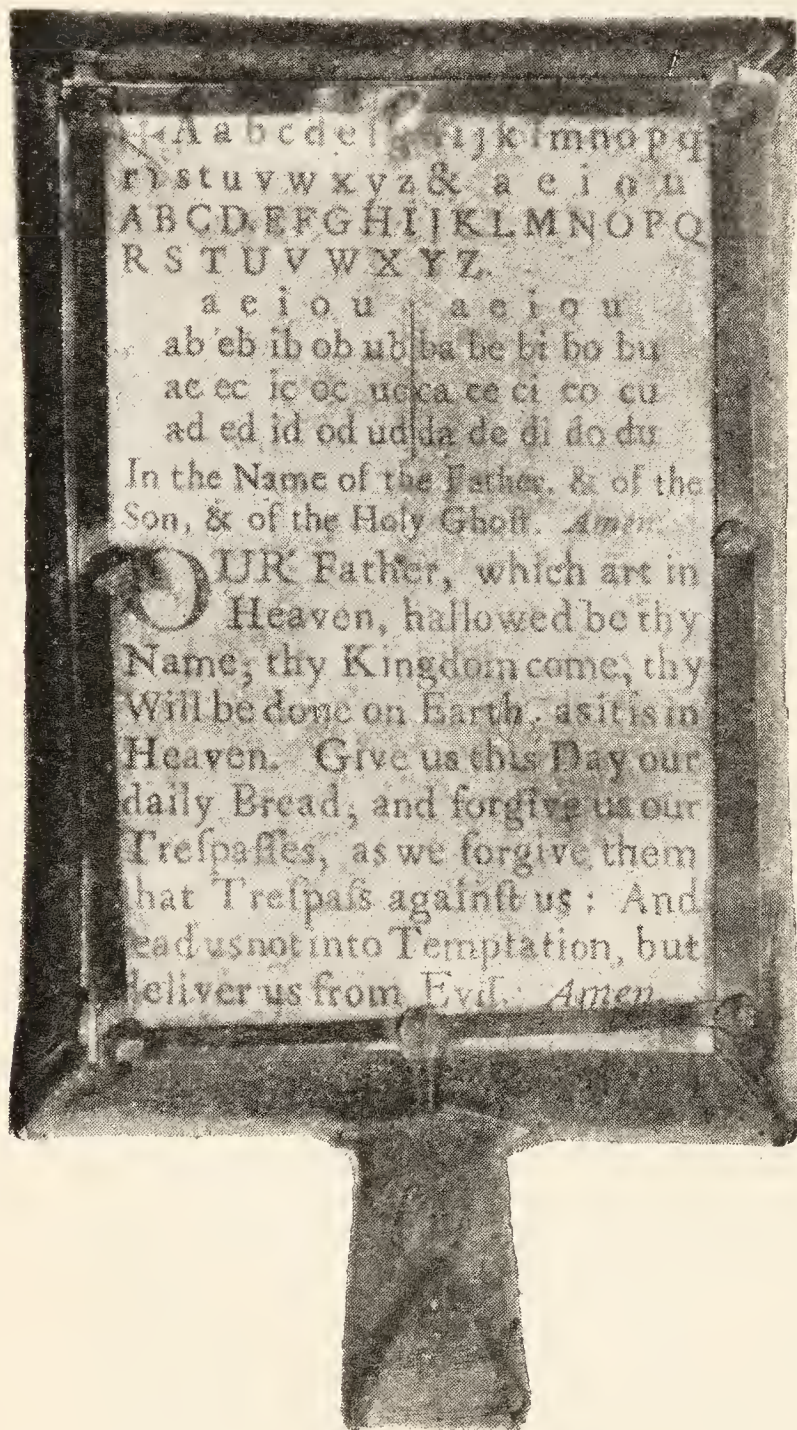 ✠ A a b c d e f g h i j k l m n o p q
r ſ s t u v w x y z & a e i o u
A B C D E F G H I J K L M N O P Q
R S T U V W X Y Z.
a e i o u a e i o u
ab eb ib ob ub ba be bi bo bu
ac ec ic oc uc ca ce ci co cu
ad ed id od ud da de di do du
In the Name of the Father, & of the
Son, & of the Holy Ghoſt. Amen.
OUR Father, which art in
Heaven, hallowed be thy
Name; thy Kingdom come, thy
Will be done on Earth, as it is in
Heaven. Give us this Day our
daily Bread; and forgive us our
Treſpaſſes, as we forgive them
that Treſpaſs againſt us: And
lead us not into Temptation, but
deliver us from Evil. Amen.